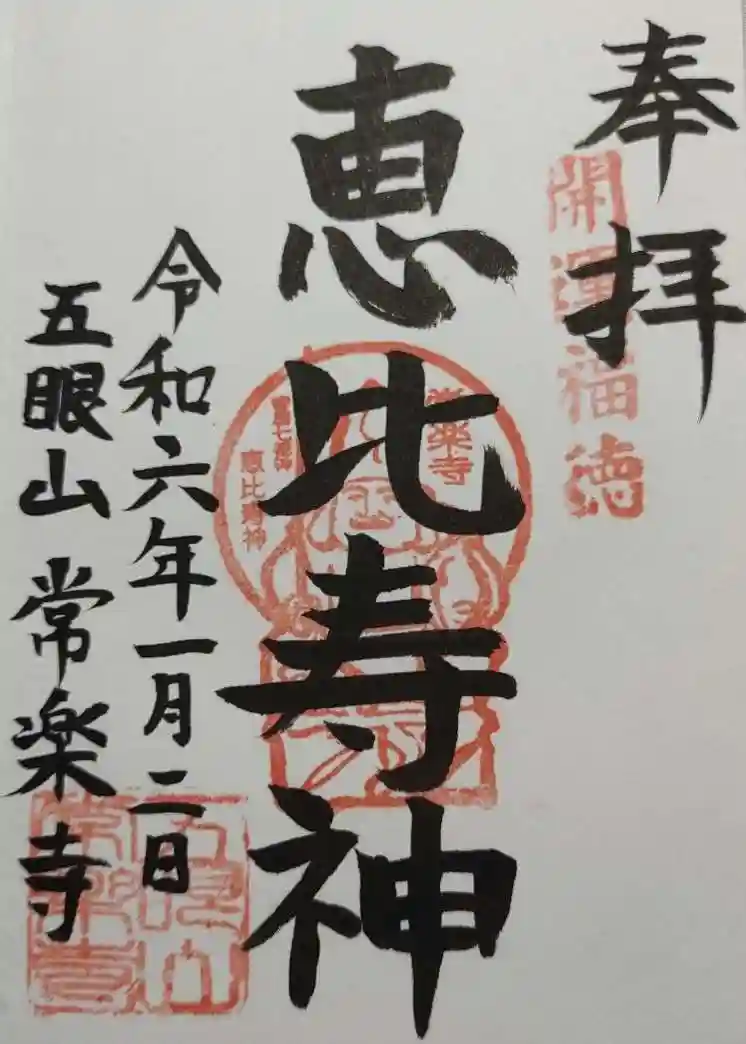 奉拝
開運福徳
恵比寿神
常楽寺
恵比寿神
令和六年一月二日
五眼山 常楽寺
五眼山
常樂寺